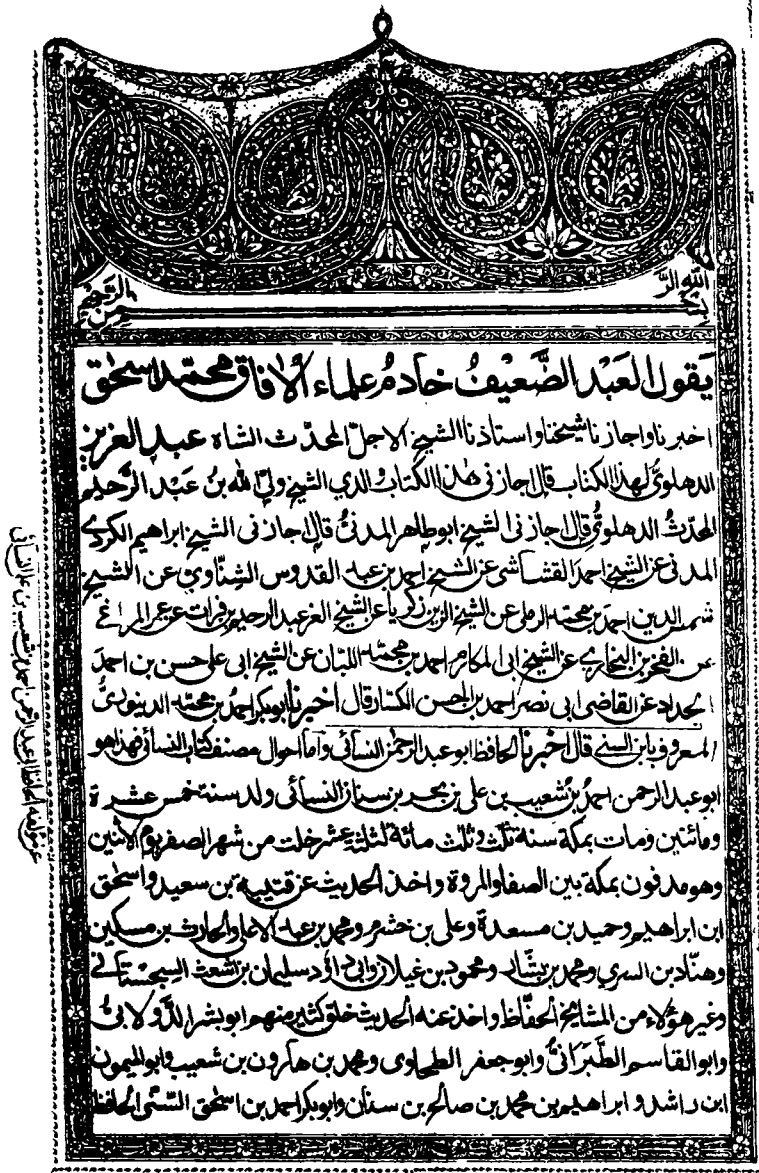 بسم الله الرحمن الرحيم
يقول العبد الضعيف خادم علماء الآفاق محمد اسحق
اخبرنا واجازنا شيخنا واستاذنا الشيخ الاجل المحدث الشاه عبد العزيز
الدهلوي لهذا الكتاب قال اجازني هذا الكتاب والدي الشيخ ولي الله بن عبد الرحيم
المحدث الدهلوي قال اجازني الشيخ ابو طاهر المدني قال اجازني الشيخ ابراهيم الكردي
المدني عن الشيخ احمد القشاشي عن الشيخ احمد بن عبد القدوس الشناوي عن الشيخ
شمس الدين احمد بن محمد الرملي عن الشيخ الزين زكريا عن الشيخ العز عبد الرحيم بن فرات عن عمر المراغي
عن الفخر بن البخاري عن الشيخ ابي المكارم احمد بن محمد اللبان عن الشيخ ابي علي حسن بن احمد
الحداد عن القاضي ابي نصر احمد بن الحسن الكسار قال اخبرنا ابو بكر احمد بن محمد الدينوري
المعروف بابن السني قال اخبرنا الحافظ ابو عبد الرحمن النسائي واما احوال مصنف كتاب النسائي فهذا هو
ابو عبد الرحمن احمد بن شعيب بن علي بن بحر بن سنان النسائي ولد سنة خمس عشرة
ومائتين ومات بمكة سنة ثلث وثلث مائة لثلثة عشر خلت من شهر الصفر يوم الاثنين
وهو مدفون بمكة بين الصفا والمروة واخذ الحديث عن قتيبة بن سعيد واسحق
ابن ابراهيم وحميد بن مسعدة وعلي بن خشرم ومحمد بن عبد الاعلى والحارث بن مسكين
وهناد بن السري ومحمد بن بشار ومحمود بن غيلان وابي داؤد سليمان بن اشعث السجستاني
وغير هؤلاء من المشايخ الحفاظ واخذ عنه الحديث خلق كثير منهم ابو بشر الدولابي
وابو القاسم الطبراني وابو جعفر الطحاوي ومحمد بن هارون بن شعيب وابو الميمون
ابن راشد و ابراهيم بن محمد بن صالح بن سنان وابو بكر احمد بن اسحق السني الحافظ